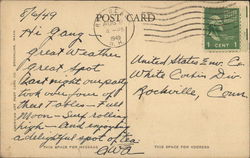 8/6/49
POST CARD
Hi Gang
Great Weather
Great Spot
Last night our party
took over four of
these Tables - Full
Moon - Surf rolling
high - And enjoying
a delightful spot of tea
1949
1 CENT 1
United States Env. Co.
White Corbin Div.
Rockville, Conn
THIS SPACE FOR MESSAGE
THIS SPACE FOR ADDRESS